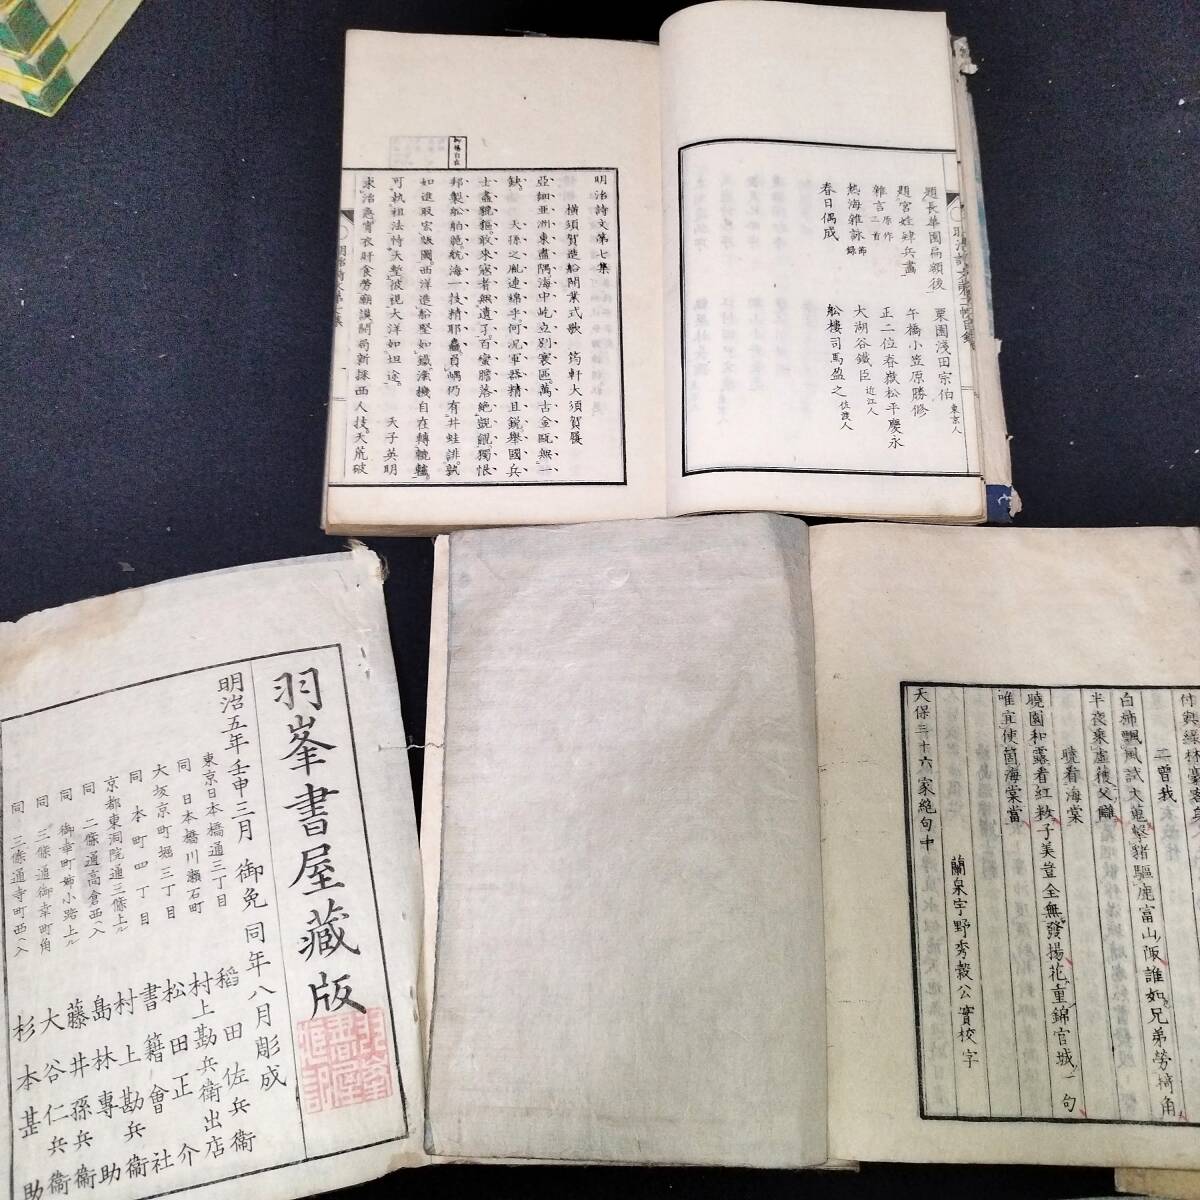 題長華園扁額後 栗園淺田宗伯 東京人
題宮娃肄兵畵 午橋小笠原勝修
雜言 二首 原作 正二位春嶽松平慶永
熱海雜詠 節録 大湖谷鐵臣 近江人
春日偶成 舩樓司馬盈之 佐渡人
明治詩文第七集
橫須賀造船開業式歌 筠軒大須賀履
亞細亞洲東盡隅海中屹立別寰區萬古金甌無一
缺 天孫之胤連綿乎何況軍器精且銳擧國兵
士盡貔貅敢來寇者無遺孑百蠻膽落絶覬覦獨恨
邦製舩舶脆航海一技精耶麤負嵎仍有井蛙誹孰
如進取宏版圖西洋造舩堅如鐵滊機自在轉軏轤
可執祖法恃天塹彼視大洋如坦途 天子英明
求治急宵衣旰食勞廟謨開局新採西人技天荒破
付與綠林豪客兵
二曾我
白柿飄風試大蒐拏豬驅鹿富山阪誰如兄弟勞掎角
半夜乘虛獲父讎
曉看海棠
曉園和露看紅粉子美豈全無發揚花重錦官城一句
唯宜使箇海棠當
天保三十六家絶句中 蘭泉宇野秀毅公實校字
羽峯書屋藏版
明治五年壬申三月 御免 同年八月彫成
東京日本橋通三丁目 稻田佐兵衞
同 日本橋川瀬石町 村上勘兵衛出店
大坂京町堀三丁目 松田正介
同 本町四丁目 書籍會社
京都東洞院通三條上ル 村上勘兵衞
同 二條通高倉西へ入 島林專助
同 御幸町姉小路上ル 藤井孫兵衞
同 三條通御幸町角 大谷仁兵衞
同 三條通寺町西へ入 杉本甚助